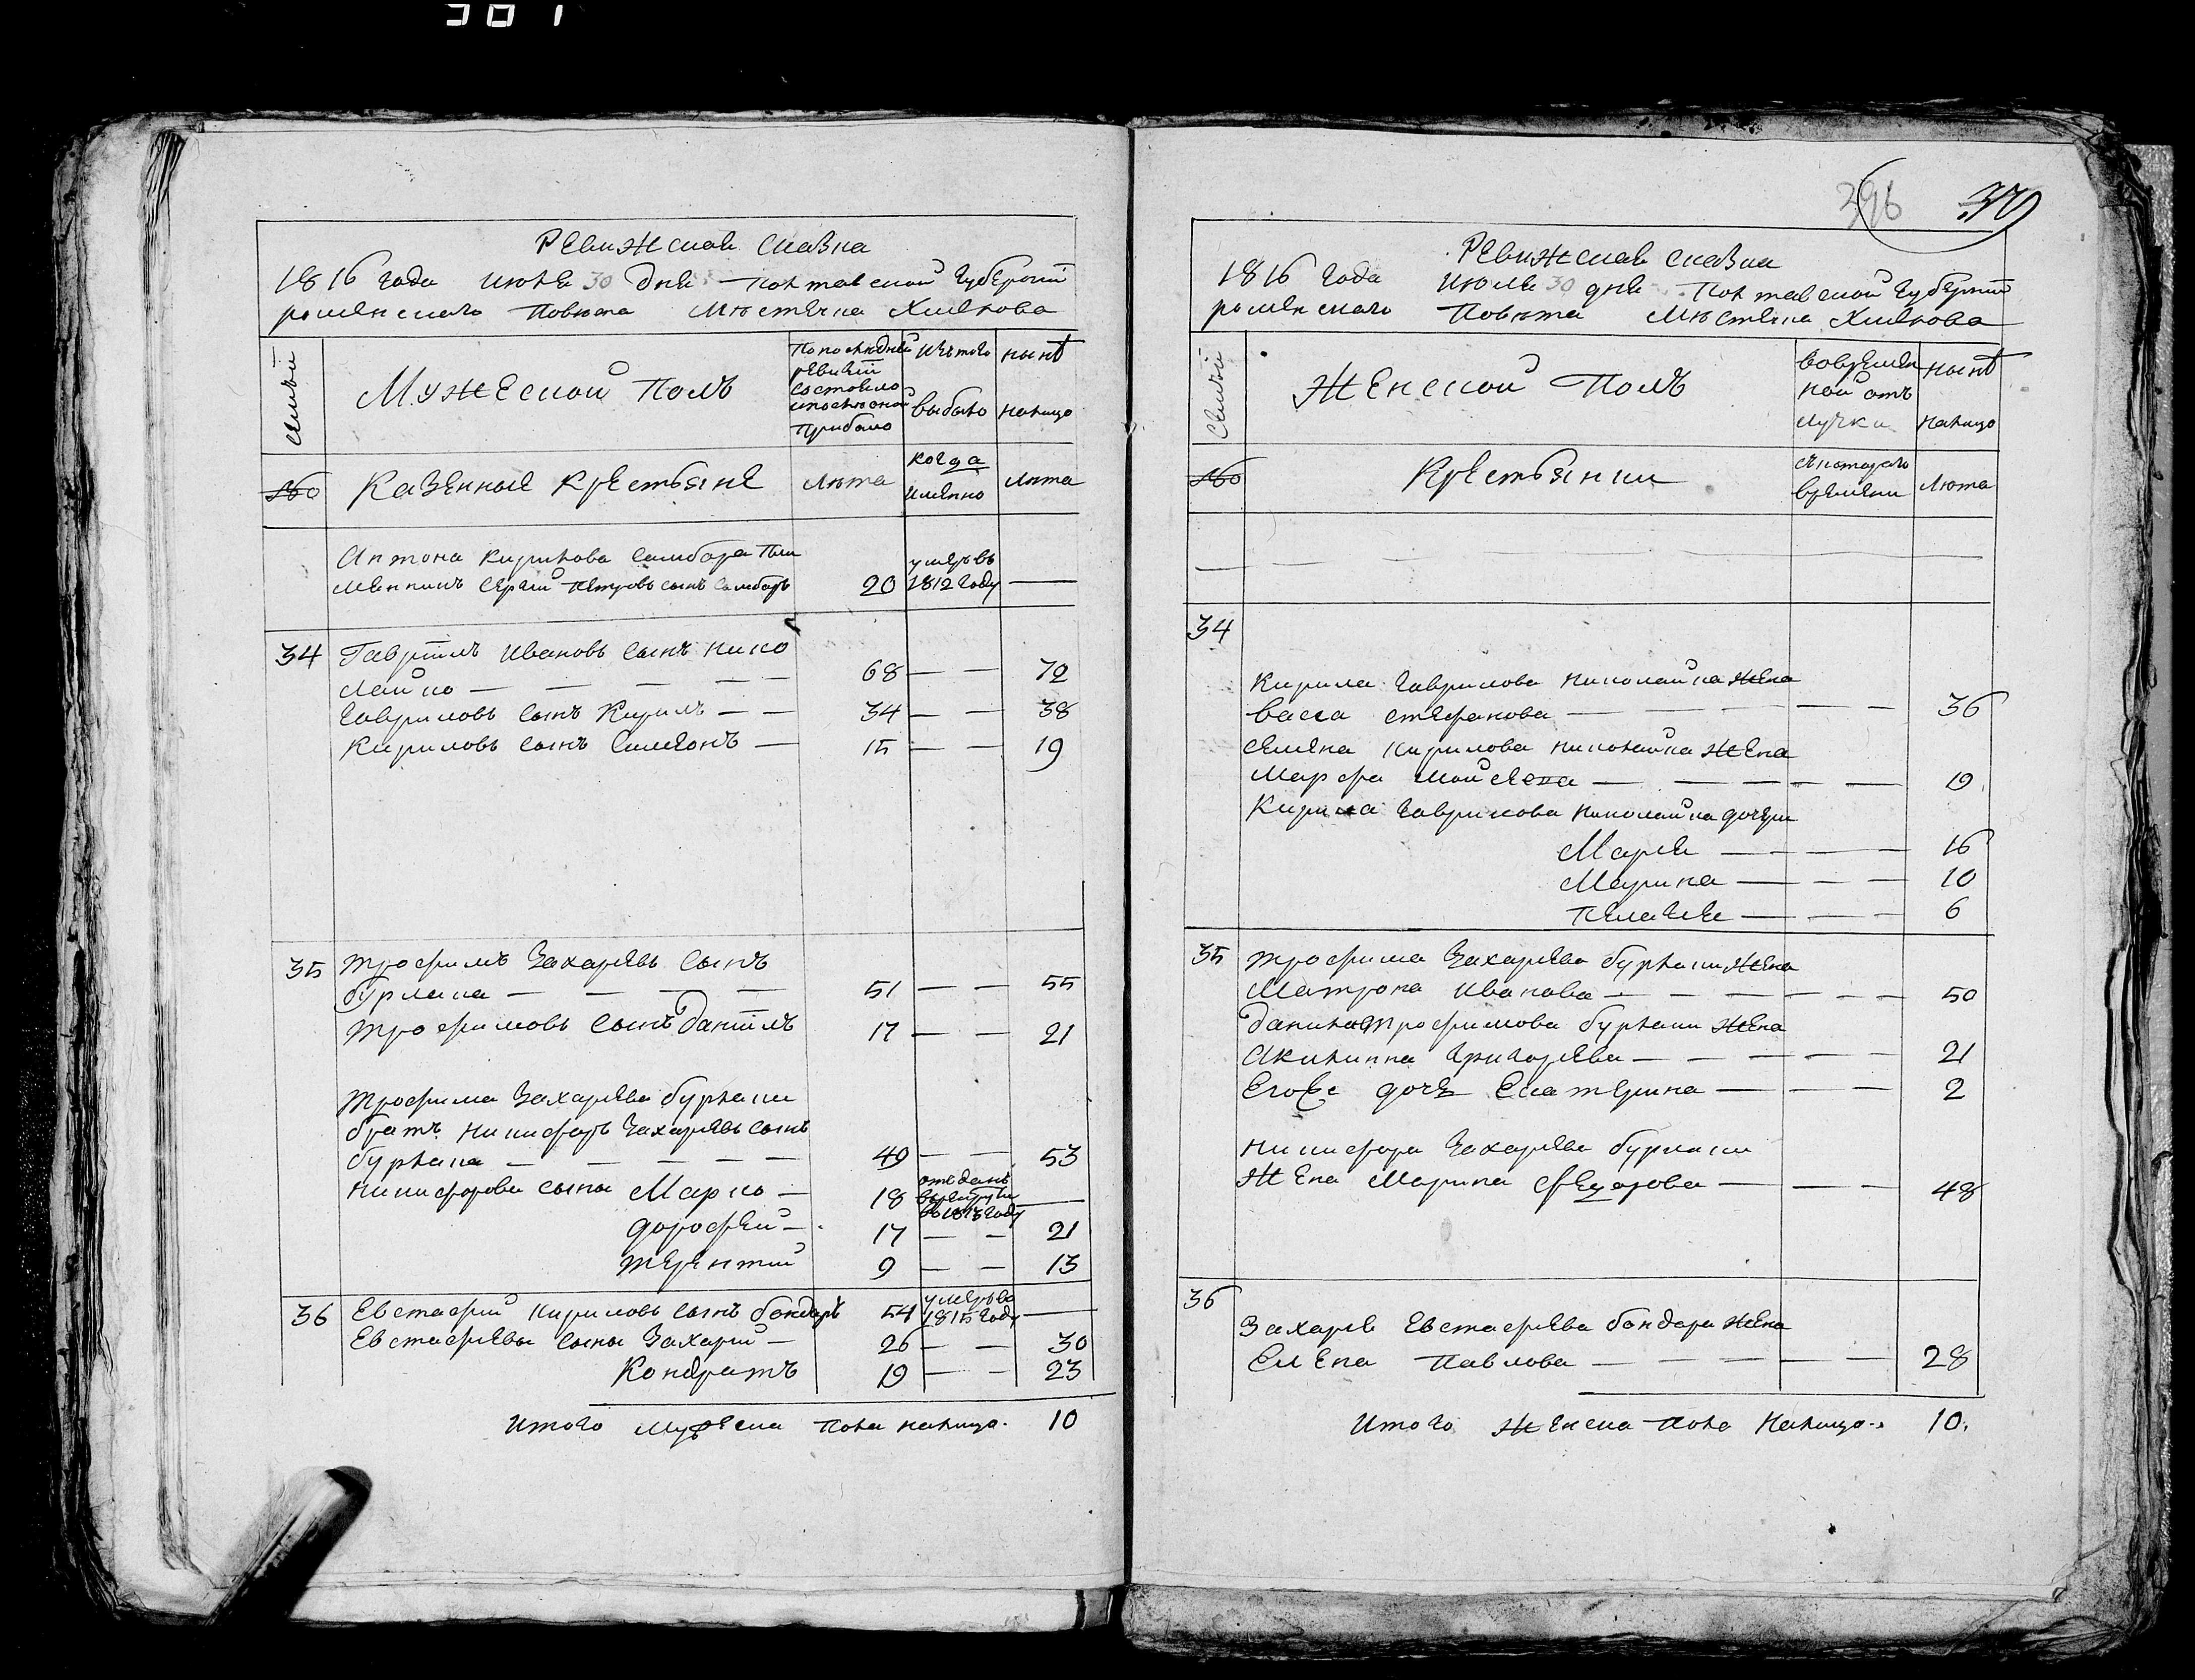 381
Ревижская сказка
1816 года июля 30 дня Полтавской губернии
роменского Повѣта Мѣстечка Хмелова
Семьи
Мужеской Полъ
По последней
ревизии
состояло
и после оной
Прибыло
Изъ того
выбыло
ныне
налицо
№
Казенные Крестьяне
Лѣта
когда
именно
Лѣта
Антона Кирилова самбора Пле
менникъ Сергий Петровъ сынъ самборъ 20 —
умеръ въ
1812 году
34 Гавриилъ Ивановъ сынъ Нико
лайко — — — — — 68 — — 72
Гавриловъ сынъ Кирилъ — — 34 — — 38
Кириловъ сынъ Симеонъ — 15 — — 19
35 Трофимъ Захарьевъ сынъ
бурлака — — — — 51 — — 55
Трофимовъ сынъ Даниилъ 17 — — 21
Трофима Захарьева бурлаки
братъ Никифоръ Захарьевъ сынъ
бурлака — — — — — 49 — — 53
Никифоровы сыны Марко — 18 —
отдданъ
в рекруты
въ году
дорофей — 17 — — 21
терентий 9 — — 13
36 Евстафий Кириловъ сынъ бондарь 54 —
умеръ въ
1815 году
Евстафиевы сыны Захарий — 26 — — 30
Кондратъ 19 — — 23
Итого мужеска пола налицо. 10
396 370
Ревижская сказка
1816 года Июля 30 дня Полтавской губернии
роменского Повѣта Мѣстечка Хмелова
Семьи
Женской Полъ
во времен
ной отъ
лучке
ныне
налицо
№
Крестьянки
съ которого
времени
Лѣта
34
Кирила Гаврилова Николайка жена
васса стефанова — — — — — 36
семена Кирилова николайка жена
Марфа Мойсеева — — — — — 19
Кирила Гаврилова Николайка дочери
Мария — — — — 16
Марина — — — 10
Пелагея — — — 6
35 Трофима Захарьева бурлаки жена
Матрона Иванова — — — — — — 50
Данила Трофимова бурлаки жена
Акилина Григорьева — — — — — 21
Его же дочь Екатерина — — — 2
Никифора Захарьева бурлаки
Жена Марина Федорова — — — 48
36
Захария Евстафиева бондаря жена
Елена Павлова — — — — — — 28
Итого женска пола налицо. 10.